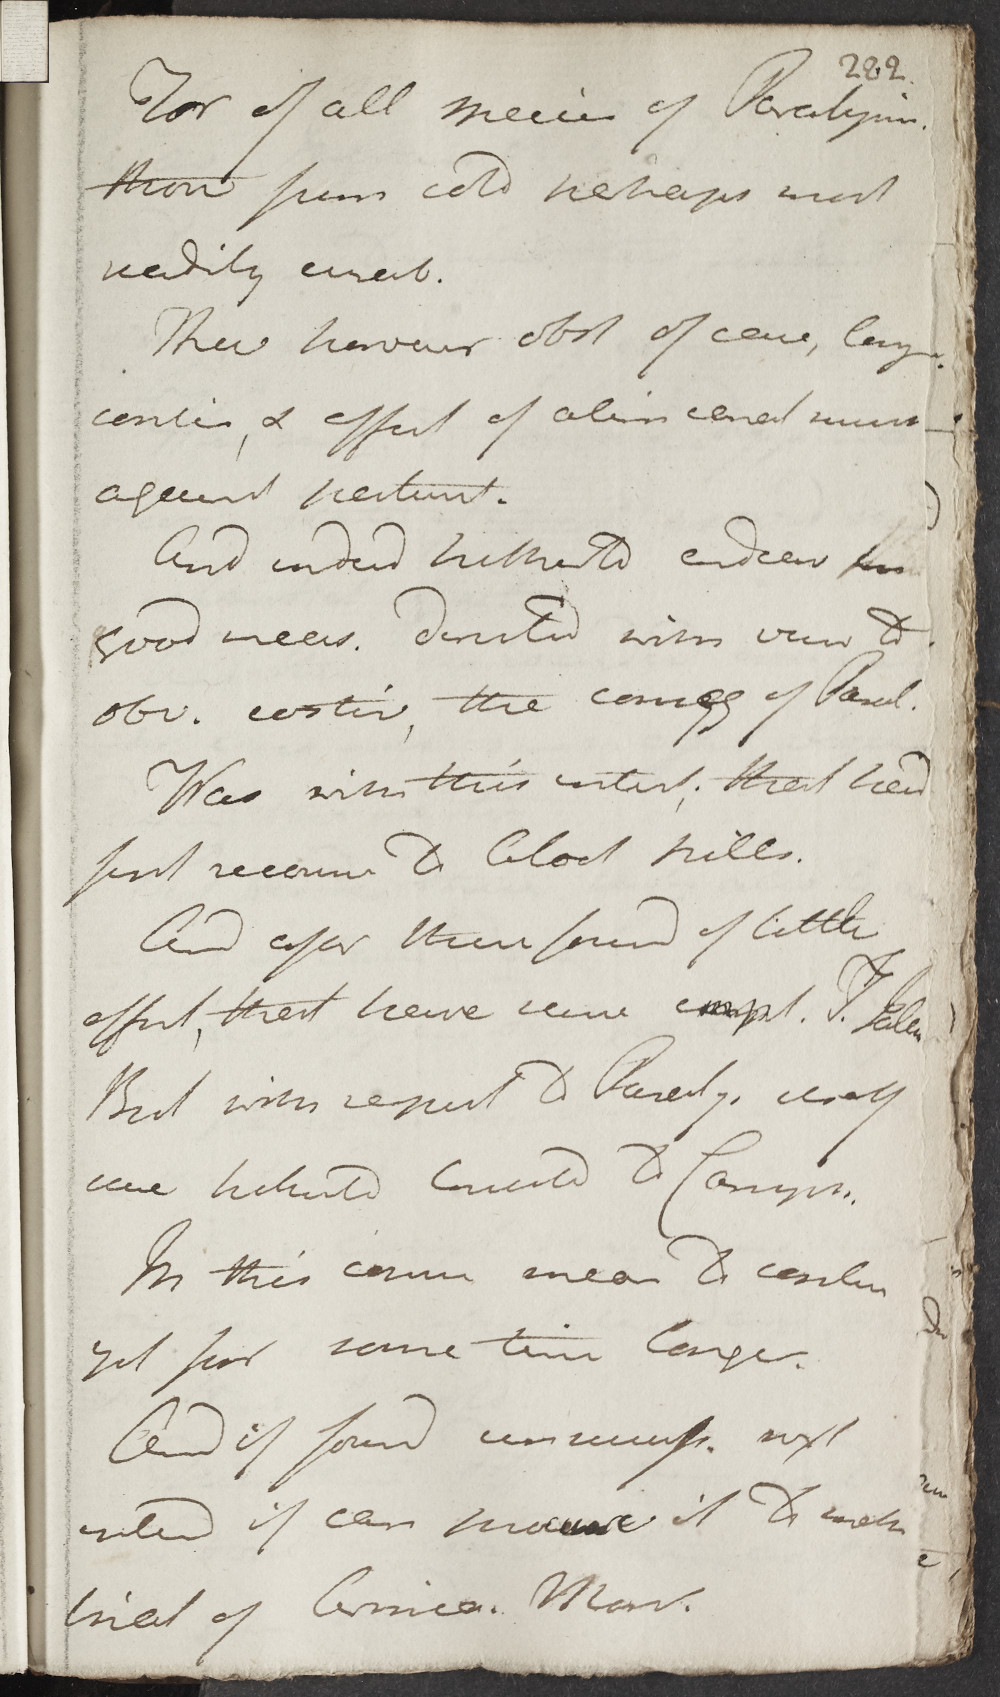 282.
For of all species of Paralysis.
those from cold perhaps most
readily cured.
These however obst of case, long
contin, & effect of alim canal
against
And indeed hitherto endeav
good meas. directed with view to
obv. costiv, the conseq of Paral.
Was with this intent, that had
first recourse to Aloet pills.
And after these found of little
effect, that have used T. Jalap
But with respect to Paraly. itself
have hitherto trusted to
In this course mean to contin
yet for some time longer.
And if found unsuccessf. next
intend if can procure it to make
trial of Arnica. Mont.